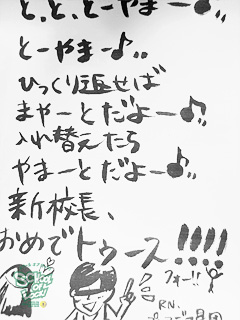 と、と、とーやまー♪
とーやまー♪
ひっくり返せば
まやーとだよー♪
入れ替えたら
やまーとだよー♪
新校長、
おめでトゥース!!!!!
フォー!!
RN.